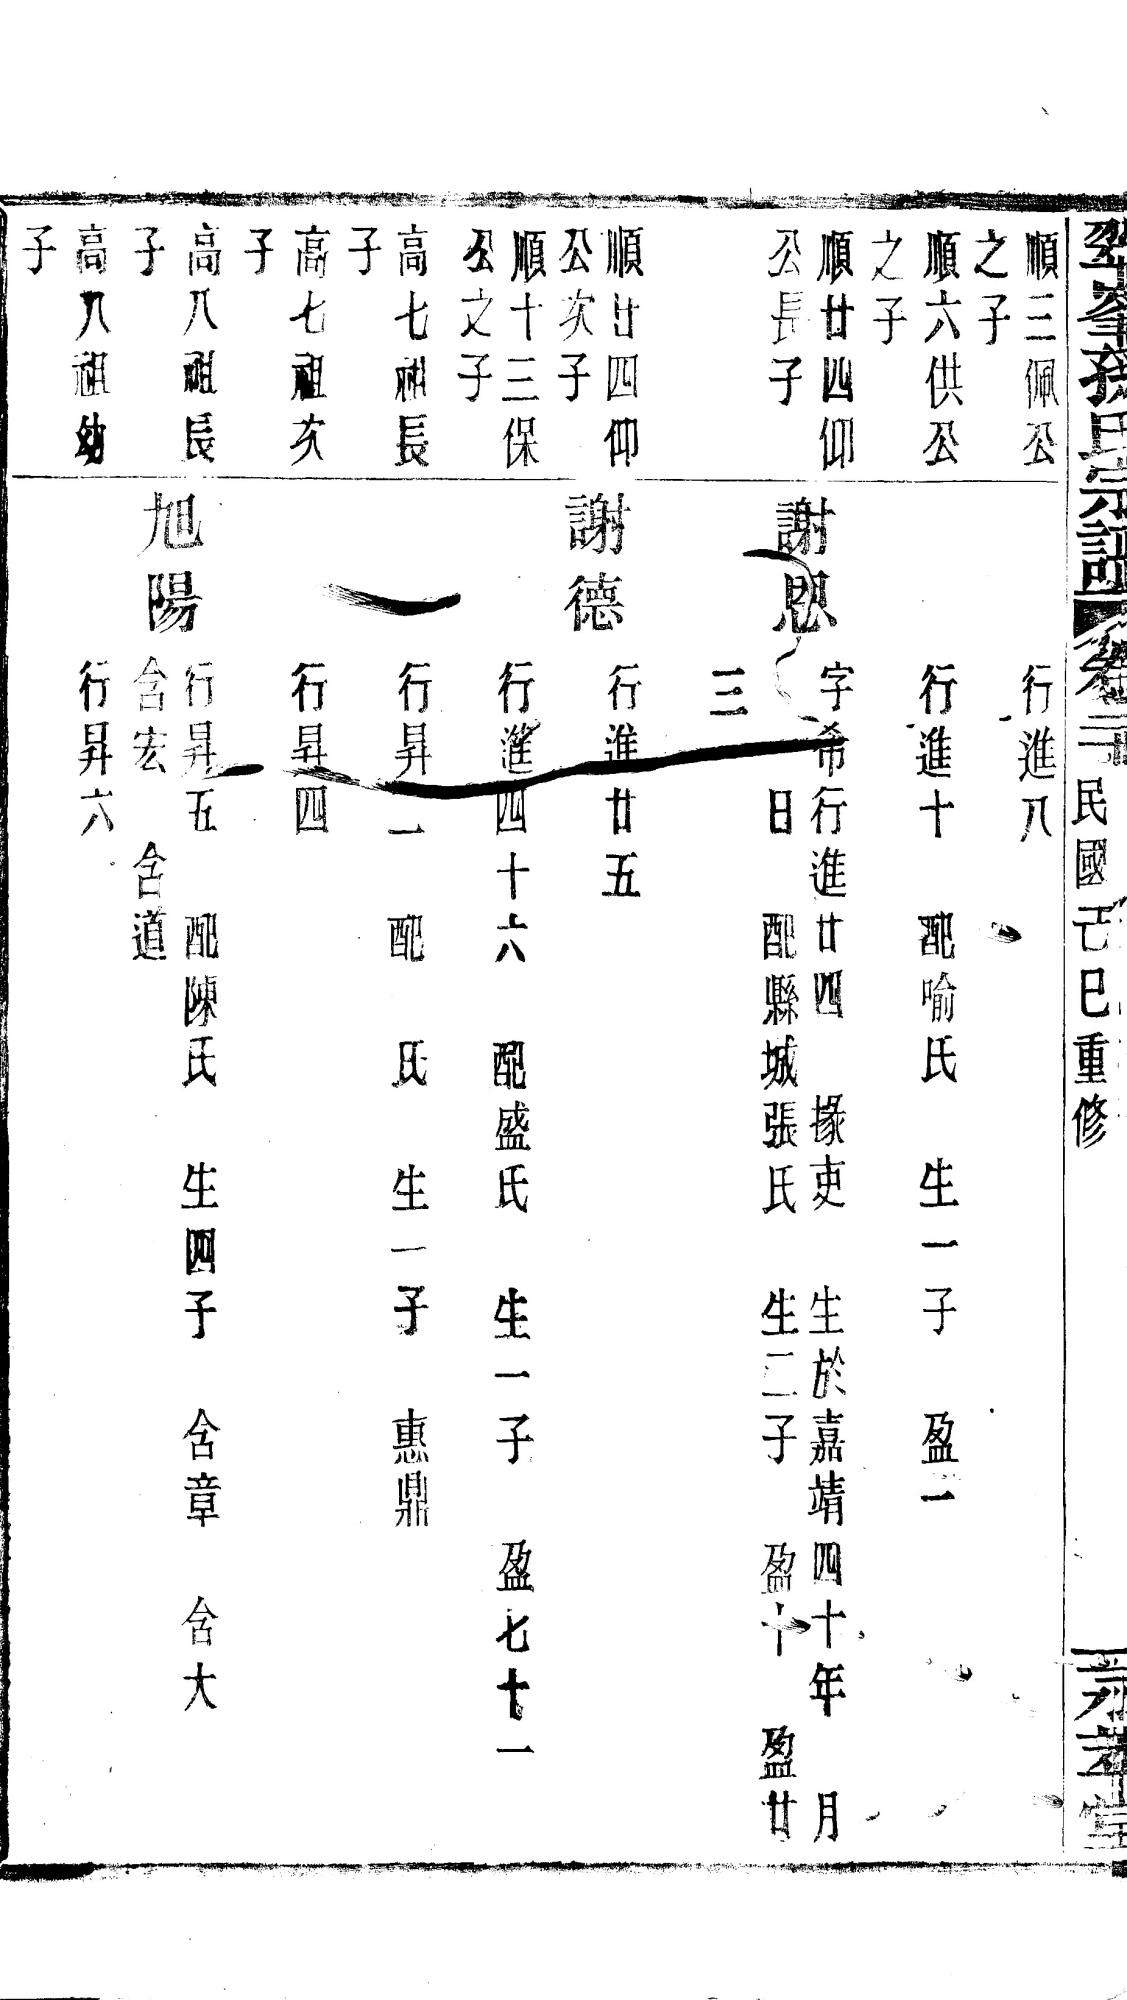 孫氏宗譜
卷二
民國己巳重修
順三佩公
之子
行進八
順六供公
之子
行進十 配喻氏 生一子 盈一
順廿四仰
公長子
謝恩
字希行進廿四 掾吏 生於嘉靖四十年 月
日 配縣城張氏 生二子 盈十 盈廿
三
順廿四仰
公次子
謝德
行進廿五
順十三保
公文子
行進四十六 配盛氏 生一子 盈七十一
高七祖長
子
行昇一 配 氏 生一子 惠鼎
高七祖次
子
行昇四
高八祖長
子
旭陽
行昇五 配陳氏 生四子 含章 含大
含宏 含道
高八祖幼
子
行昇六